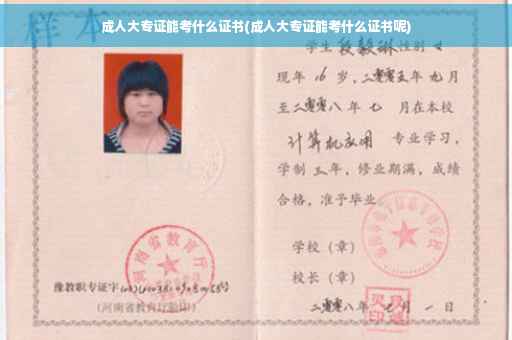 成人大专证能考什么证书(成人大专证能考什么证书呢)
样本
学生 段毅琳 性别 女
现年 16 岁，二零零五年 九 月
至二零零八年 七 月在本校
计算机应用 专业学习，
学制 三 年，修业期满，成绩
合格，准予毕业
学校（章）
河南省教育厅
校长（章）
豫教职专证字
(河南省教育厅验印)
二零零八年 七 月 一 日